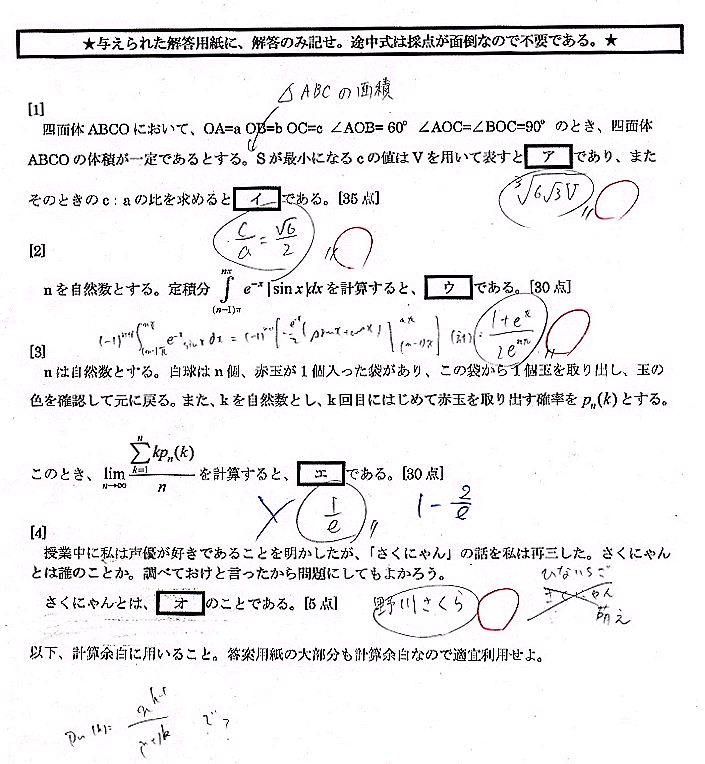 ★与えられた解答用紙に、解答のみ記せ。途中式は採点が面倒なので不要である。★
△ABCの面積
[1]
四面体 ABCO において、OA=a OB=b OC=c ∠AOB= 60° ∠AOC=∠BOC=90° のとき、四面体
ABCO の体積が一定であるとする。S が最小になる c の値は V を用いて表すと ア であり、また
そのときの c : a の比を求めると イ である。[35 点]
∛6√3V
c/a = √6/2
[2]
n を自然数とする。定積分 ∫_{(n-1)π}^{nπ} e^{-x} |sin x| dx を計算すると、 ウ である。[30 点]
= (1+e^π)/(2e^{nπ})
[3]
n は自然数とする。白球は n 個、赤玉が 1 個入った袋があり、この袋から 1 個玉を取り出し、玉の
色を確認して元に戻る。また、k を自然数とし、k 回目にはじめて赤玉を取り出す確率を p_n(k) とする。
このとき、 lim_{n→∞} (∑_{k=1}^{n} kp_n(k))/n を計算すると、 エ である。[30 点]
1/e 1 - 2/e
[4]
授業中に私は声優が好きであることを明かしたが、「さくにゃん」の話を私は再三した。さくにゃん
とは誰のことか。調べておけと言ったから問題にしてもよかろう。
さくにゃんとは、 オ のことである。[5 点] 野川さくら
ひないちご
萌え
以下、計算余白に用いること。答案用紙の大部分も計算余白なので適宜利用せよ。